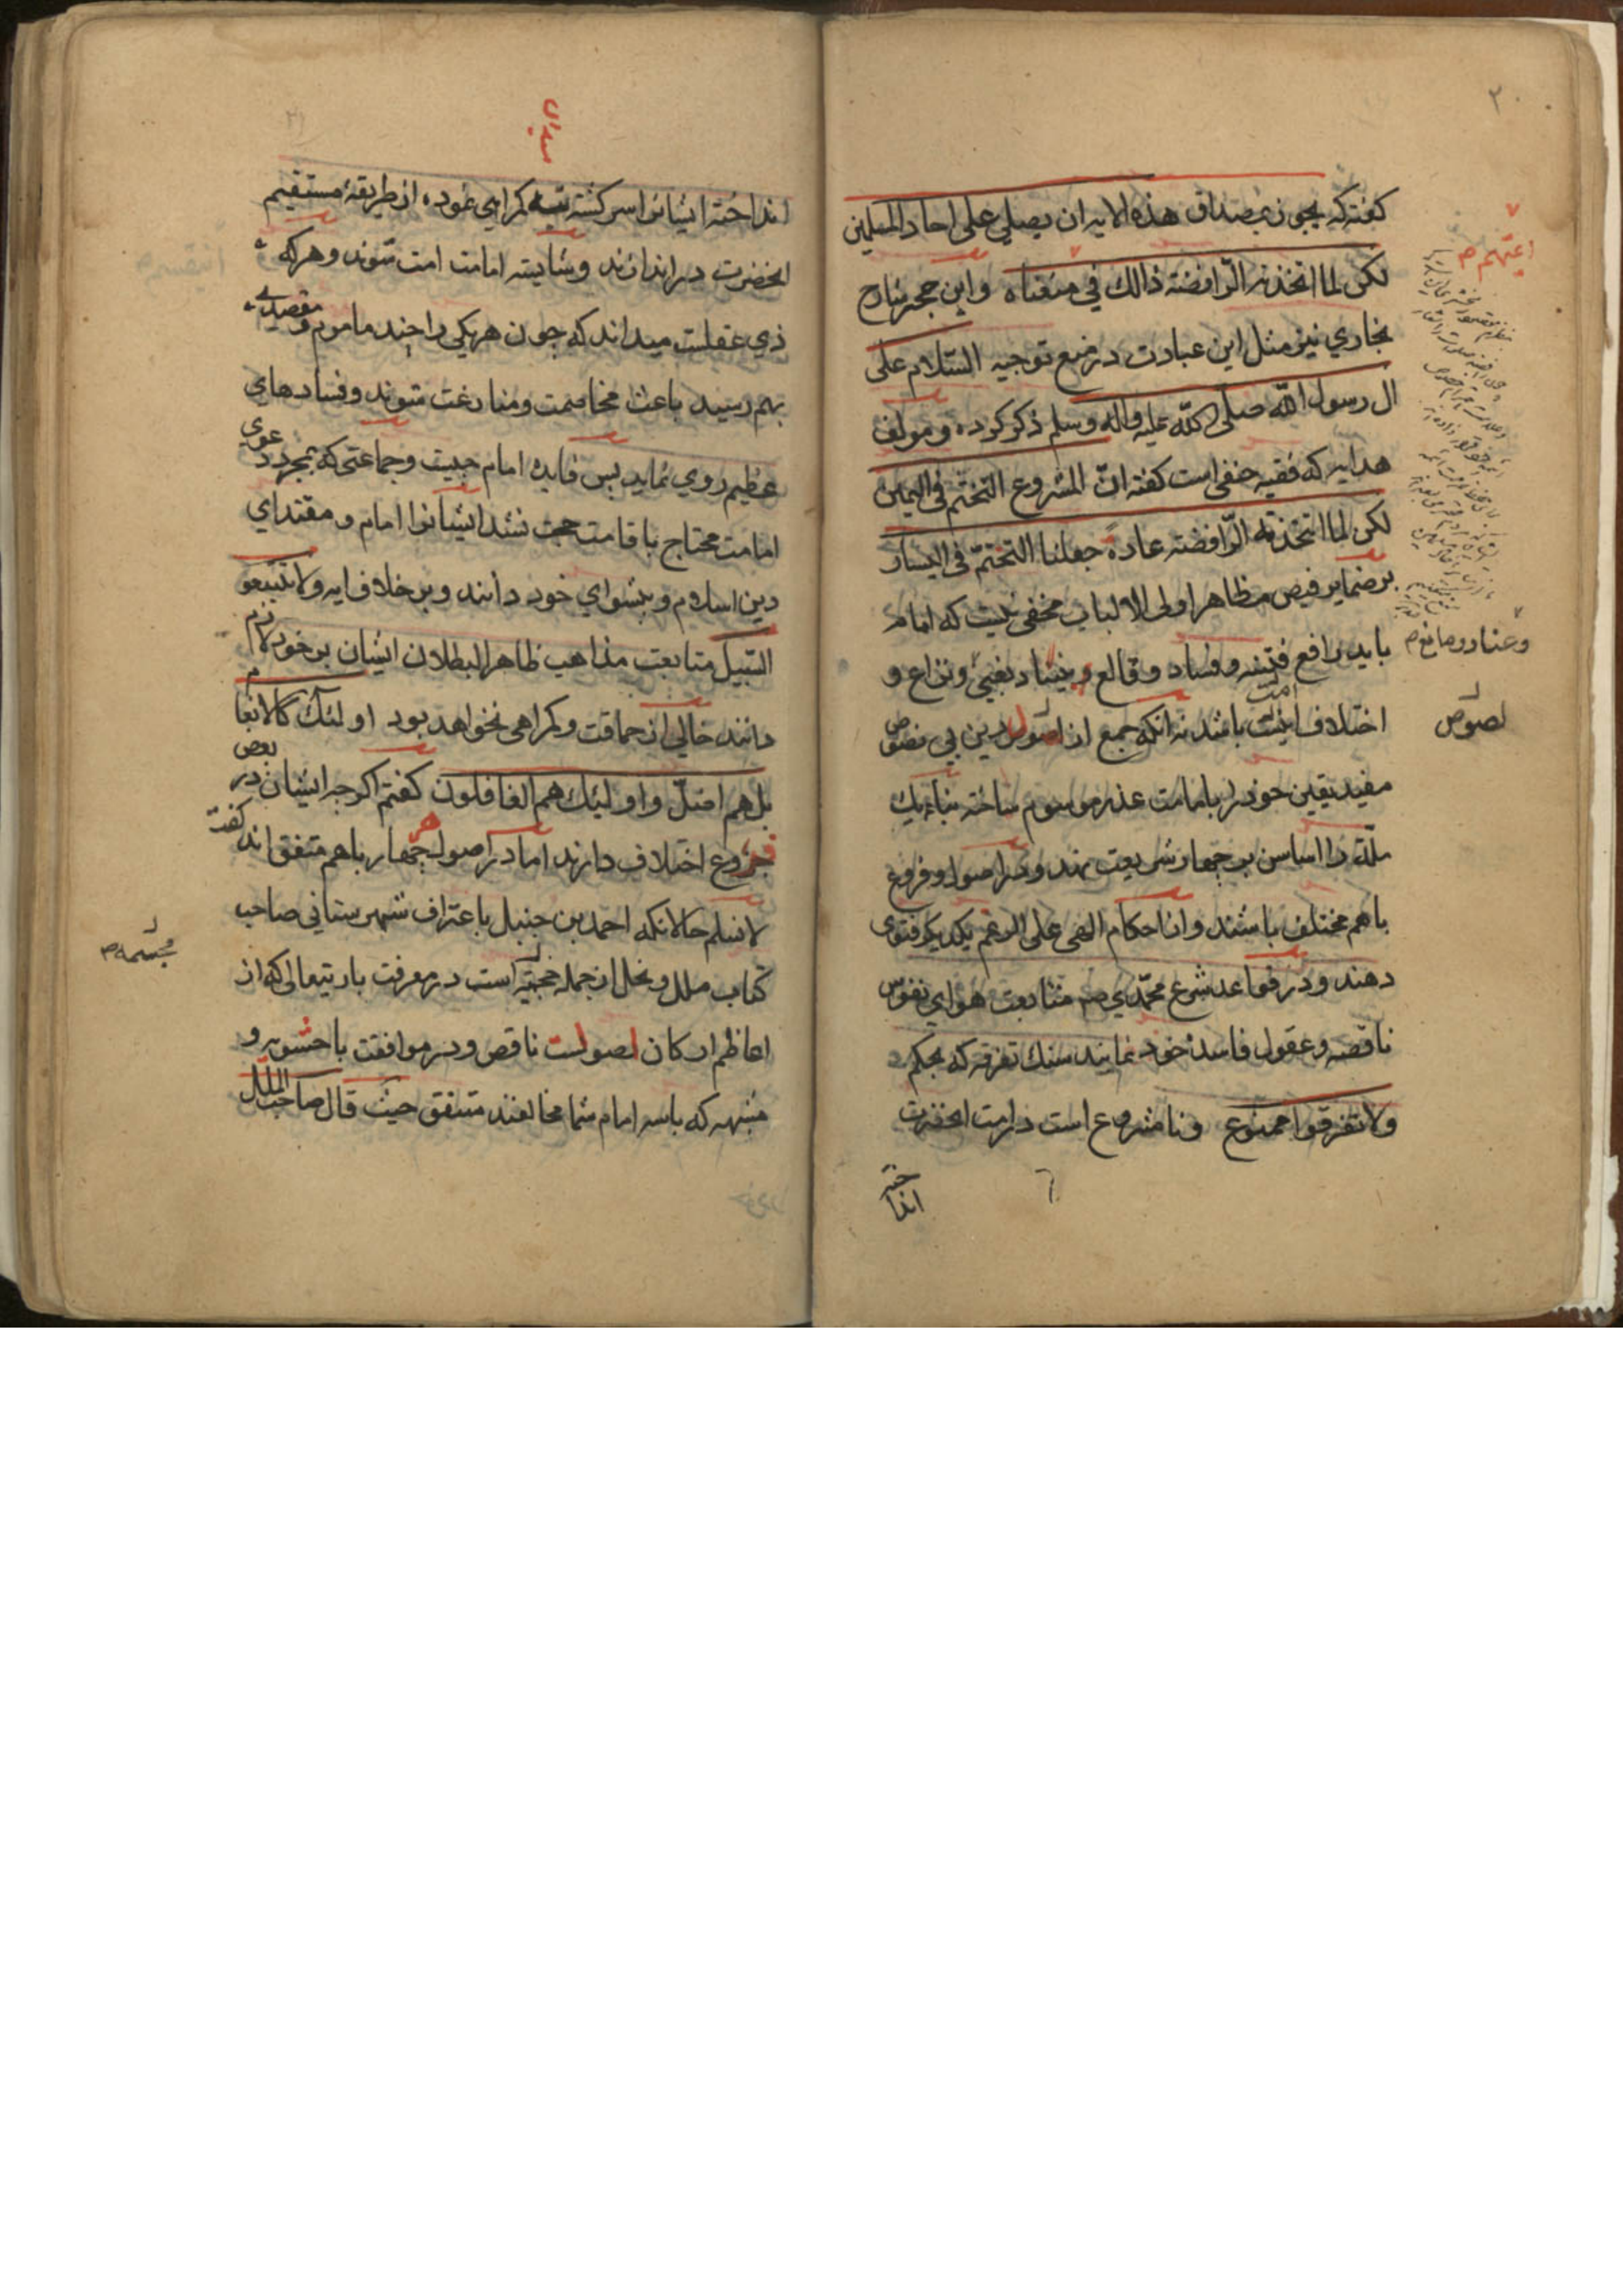 ۲۰
کفته که یجوز بمصداق هذه الایه ان یصلی علی احاد المسلمین
لکن لما اتخذته الرّافضة ذالك في مقتداه و ابن حجر شارح
بخاري نیز مثل این عبارت در منع توجیه السّلام علی
ال رسول اللّه صلی اللّه علیه واله وسلم ذکر کرده و مولف
هدایه که فقیه حنفی است کفته انّ المشروع التختم فی الیمین
لکن لما اتخذته الرّافضة عادة جعلنا التختمّ فی الیسار
بر ضمایر فیض مظاهر اولی الالباب مخفی نیست که امام
باید رافع فتنه و فساد و قالع و بنیاد بغی و نزاع و
اختلاف امت باشد نه انکه جمع از اصول دین بی نصوص
مفید یقین خود را بامامت عذر موسوم ساخته بناء یك
ملّت را اساس بر چهار شریعت نهند و در اصول و فروع
باهم مختلف باشند و از احکام الهی علی الرغم یکدیکر فتوی
دهند و در قواعد شرع محمّدي صم متابعت هوای نفوس
ناقصه و عقول فاسدۀ خود نمایند سنك تفرقه که بحکم
ولا تفرقوا ممنوع و نا مشروع است در امت انحضرت
انداخته
اعتهم ص
وعناد و مانع ص
لصوص
انداخته ایشانرا سرکشته تیه کمراهی نموده از طریقهٔ مستقیم
انحضرت در اندازند و شایسته امامت امت شوند و هر که
ذي عقلست میداند که چون هر یکی را چند ماموم و مقصدی
بهم رسید باعث مخاصمت و منازعت شوند و فسادهای
عظیم روي نماید پس فایدۀ امام چیست و جماعتی که بمجرد دعوی
امامت محتاج باقامت حجت نشد ایشانرا امام و مقتدای
دین اسلام و پیشواي خود دانند و بر خلاف ایه ولا تتبعو
السّبیل متابعت مذاهب ظاهر البطلان ایشان بر خود لازم
دانند خالی از حماقت و کمراهی نخواهد بود اولئك کالانعا
م
بل هم اضلّ و اولیئك هم الغافلون کفتم اکرچه ایشان در بعض
فروع اختلاف دارند اما در اصول چهار باهم متفق اند کفت
لا نسلم حالانکه احمد بن حنبل باعتراف شهرستانی صاحب
کتاب ملل و نحل از جمله است در معرفت باریتعالی که از
اعاظم ارکان اصولست ناقص و در موافقت با حشویه و
مشبهه که باسه امام شما مخالفند متفق حیث قال صاحب الملل
مجسمه ص